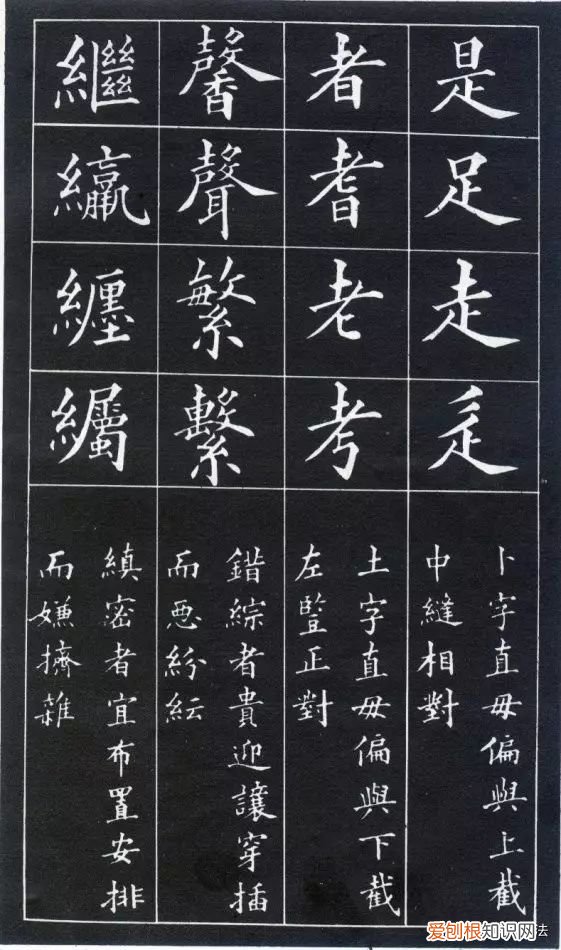 是足走辵
卜字直毋偏與上截
中縫相對
者耆老考
土字直毋偏與下截
左豎正對
馨聲繁繫
錯綜者貴迎讓穿插
而惡紛紜
繼䌴纏
縝密者宜布置安排
而嫌擠雜
爱刨根知识网法